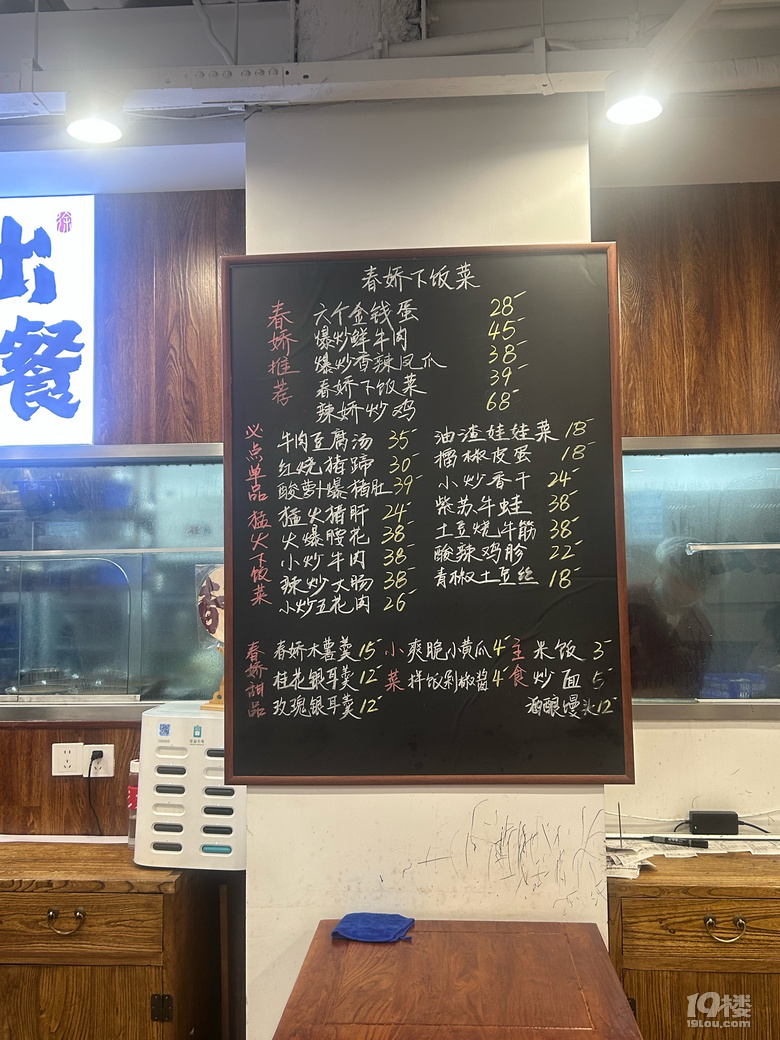 春娇下饭菜
春娇推荐
六个金钱蛋 28
爆炒鲜牛肉 45
爆炒香辣凤爪 38
春娇下饭菜 39
辣娇炒鸡 68
必点单品
猛火下饭菜
牛肉豆腐汤 35
红烧猪蹄 30
酸萝卜爆猪肚 39
猛火猪肝 24
火爆腰花 38
小炒牛肉 38
辣炒大肠 38
小炒五花肉 26
油渣娃娃菜 18
擂椒皮蛋 18
小炒香干 24
紫苏牛蛙 38
土豆烧牛筋 38
酸辣鸡胗 22
青椒土豆丝 18
春娇甜品
春娇木薯羹 15
桂花银耳羹 12
玫瑰银耳羹 12
小菜
爽脆小黄瓜 4
拌饭剁椒酱 4
主食
米饭 3
炒面 5
酒酿馒头 12
出
餐
19楼
19lou.com